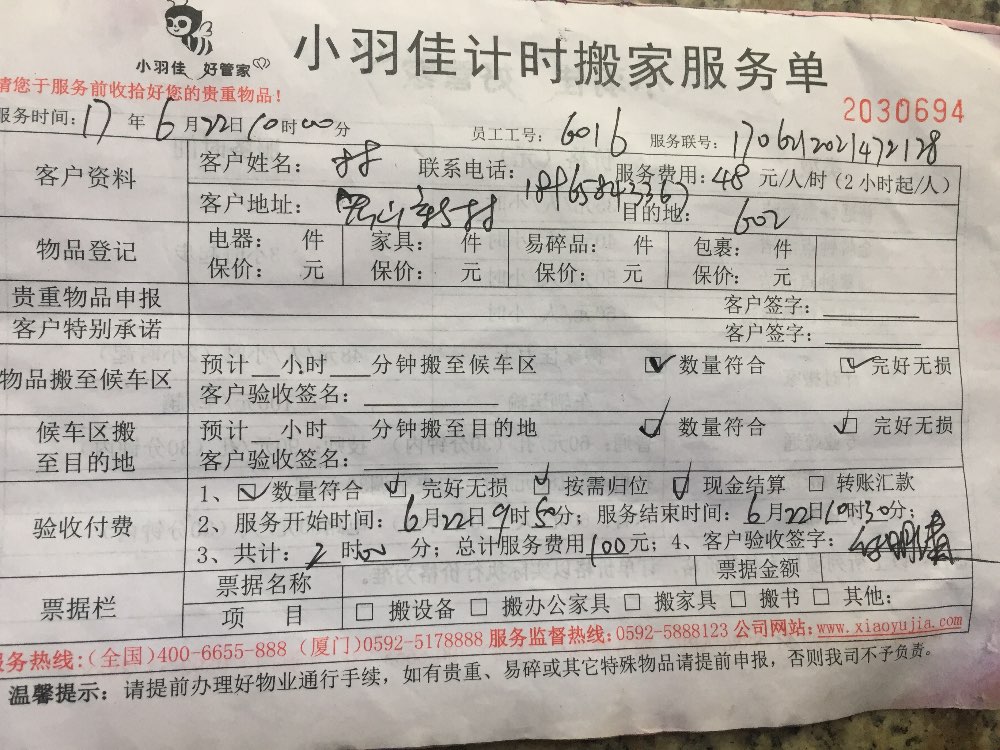 小羽佳 好管家
小羽佳计时搬家服务单
请您于服务前收拾好您的贵重物品！
2030694
服务时间：17年6月22日10时00分 员工工号：6016 服务联号：1706212021472128
客户资料
客户姓名： 联系电话： 服务费用：48元/人/时（2小时起/人）
客户地址： 目的地：602
物品登记
电器： 件 家具： 件 易碎品： 件 包裹： 件
保价： 元 保价： 元 保价： 元 保价： 元
贵重物品申报 客户签字：
客户特别承诺 客户签字：
物品搬至候车区
预计 小时 分钟搬至候车区 数量符合 完好无损
客户验收签名：
候车区搬至目的地
预计 小时 分钟搬至目的地 数量符合 完好无损
客户验收签名：
验收付费
1、 数量符合 完好无损 按需归位 现金结算 转账汇款
2、服务开始时间：6月22日9时50分；服务结束时间：6月22日10时30分；
3、共计：2时00分；总计服务费用100元；4、客户验收签字：
票据栏
票据名称 票据金额
项 目 搬设备 搬办公家具 搬家具 搬书 其他：
服务热线：（全国）400-6655-888（厦门）0592-5178888 服务监督热线：0592-5888123 公司网站：www.xiaoyujia.com
温馨提示：请提前办理好物业通行手续，如有贵重、易碎或其它特殊物品请提前申报，否则我司不予负责。